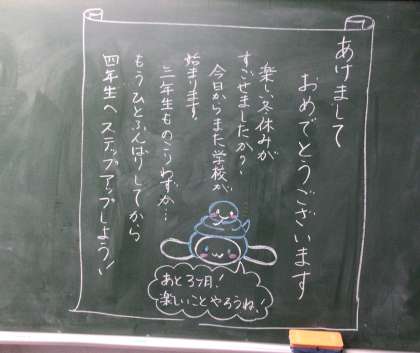 あけまして
おめでとうございます
楽しい冬休みが
すごせましたか?
今日からまた学校が
始まります。
三年生ものこりわずか…
もうひとふんばりしてから
四年生へステップアップしよう!
あと3ヶ月!
楽しいことやろうね!